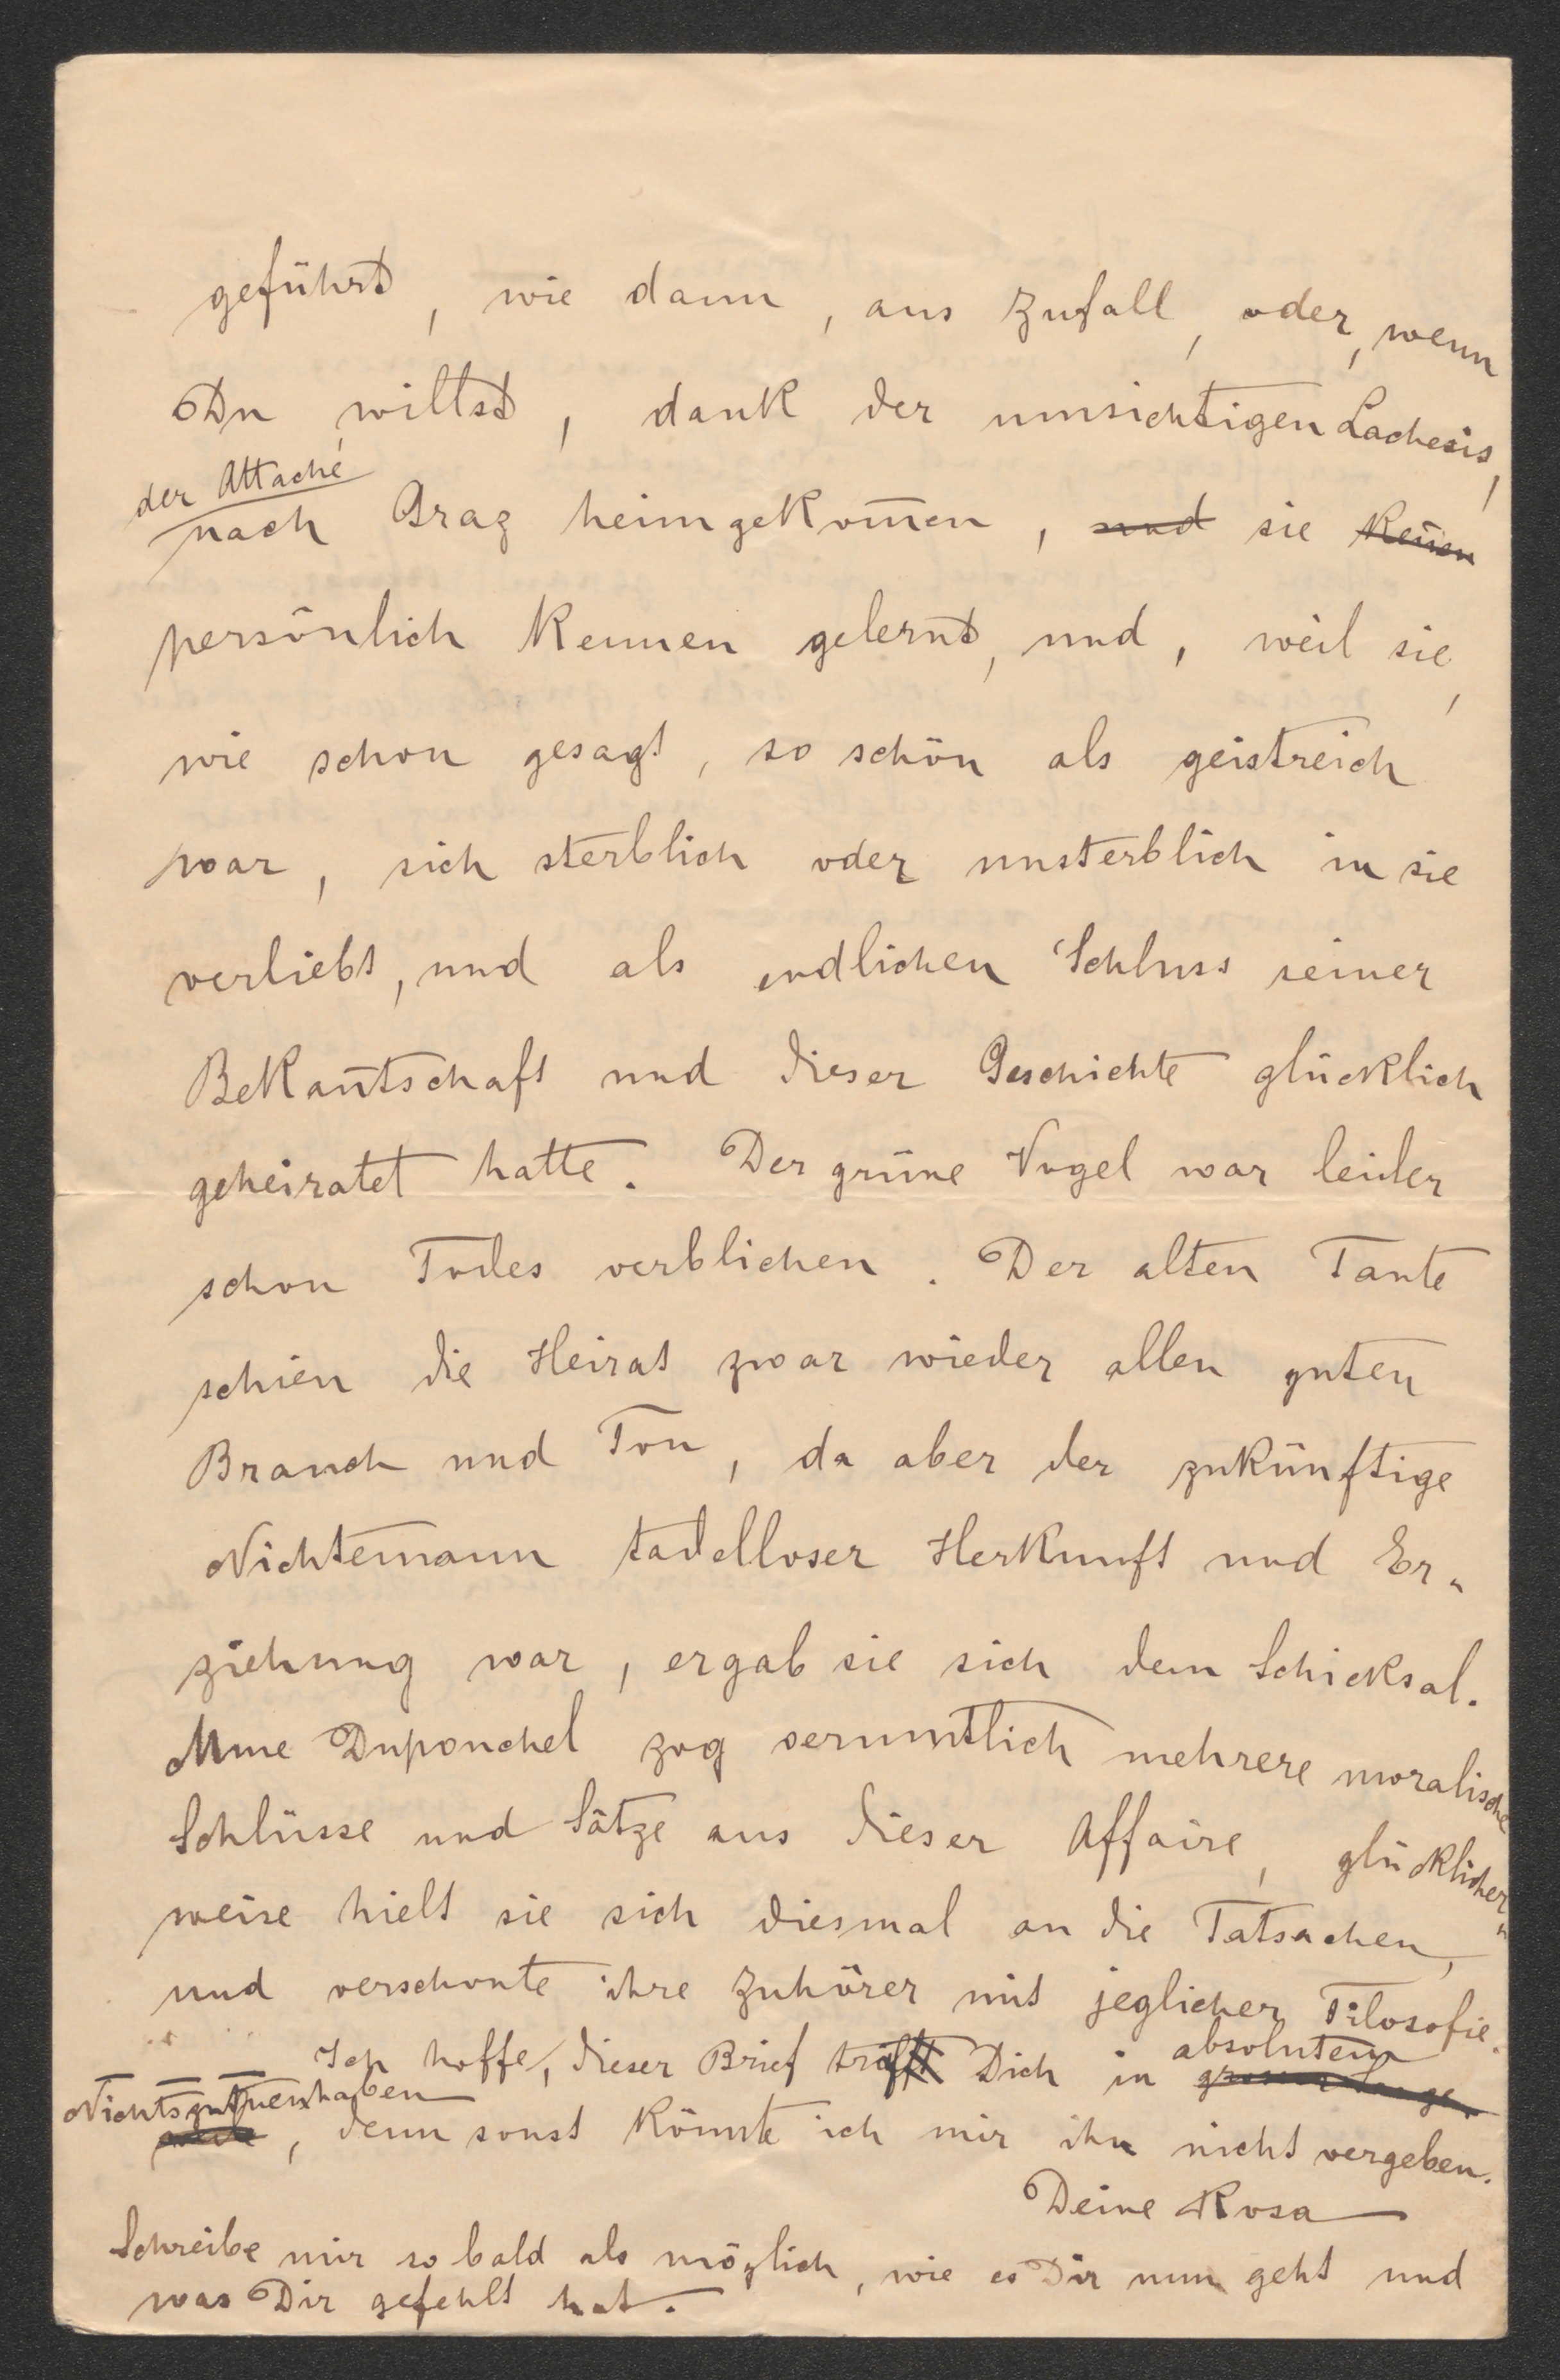 geführt, wie dann, aus Zufall, oder, wenn
Du willst, dank der umsichtigen Lachesis,
der Attaché
nach Graz heimgekom̄en, und sie ken̄en
persönlich kennen gelernt, und, weil sie,
wie schon gesagt, so schön als geistreich
war, sich sterblich oder unsterblich in sie
verliebt, und als endlichen Schluss seiner
Bekan̄tschaft und dieser Geschichte glücklich
geheiratet hatte. Der grüne Vogel war leider
schon Todes verblichen. Der alten Tante
schien die Heirat zwar wieder allen guten
Brauch und Ton, da aber der zukünftige
Nichtemann tadelloser Herkunft und Er-
ziehung war, ergab sie sich dem Schicksal.
Mme Duponchel zog vermutlich mehrere moralische
Schlüsse und Sätze aus dieser Affaire, glücklicher-
weise hielt sie sich diesmal an die Tatsachen,
und verschonte ihre Zuhörer mit jeglicher Filosofie.
absolutem
Ich hoffe, dieser Brief trifft Dich in
Nichtszutuenhaben
, denn sonst könnte ich mir ihn nicht vergeben.
Deine Rosa
Schreibe mir so bald als möglich, wie es Dir nun geht und
was Dir gefehlt hat.